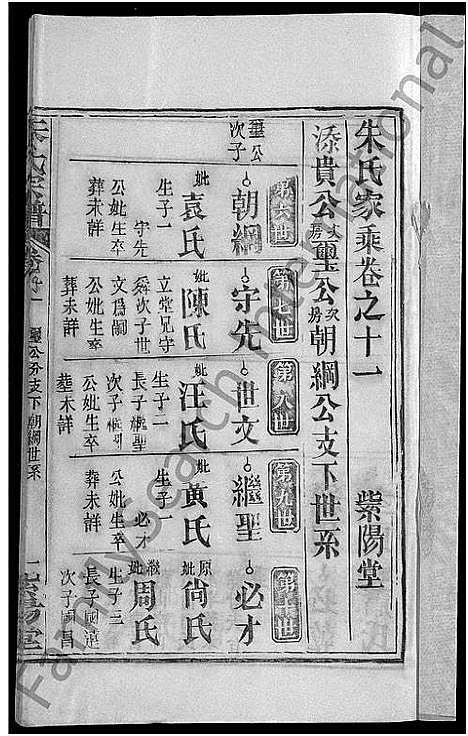 朱氏家乘卷之十一 紫陽堂
添貴公次房璽公次房朝綱公支下世系
第六世
璽公次子
朝綱
妣袁氏
生子一
守先
公妣生卒
葬未詳
第七世
守先
妣陳氏
立堂兄守
舜次子世
文爲嗣
公妣生卒
葬未詳
第八世
世文
妣汪氏
生子二
長子繼聖
次子繼
公妣生卒
葬未詳
第九世
繼聖
妣黄氏
生子一
必才
公妣生卒
葬未詳
第十世
必才
原妣尙氏
繼妣周氏
生子三
長子國
次子國昌
朱氏宗譜
卷十一
璽公分支下朝綱世系
一
紫陽堂
FamilySearch International